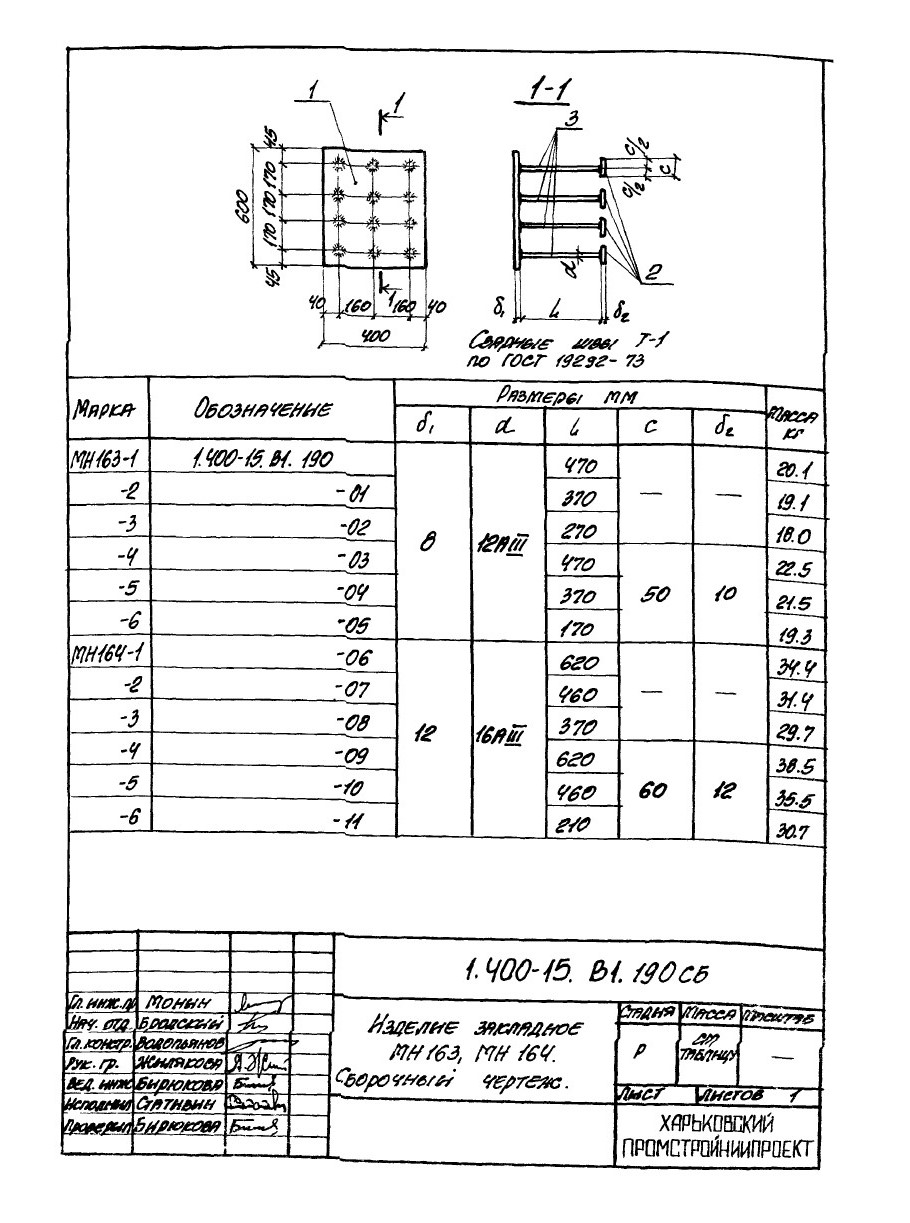 1
1
1-1
3
c/2
c
c/2
45
170
170
170
45
600
d
2
40 160 1 160 40
400
δ₁ L δ₂
Сварные швы Т-1
по ГОСТ 19292-73
Марка Обозначение Размеры мм Масса кг
δ₁ d L c δ₂
МН163-1 1.400-15.В1.190 8 12АIII 470 — — 20.1
-2 -01 370 19.1
-3 -02 270 18.0
-4 -03 470 50 10 22.5
-5 -04 370 21.5
-6 -05 170 19.3
МН164-1 -06 12 16АIII 620 — — 34.4
-2 -07 460 31.4
-3 -08 370 29.7
-4 -09 620 60 12 38.5
-5 -10 460 35.5
-6 -11 210 30.7
1.400-15. В1.190СБ
Гл. инж. пр Монин
Нач. отд Бродский
Гл. констр. Водопьянов
Рук. гр. Жилякова
Вед. инж Бирюкова
Исполнил Стативин
Проверил Бирюкова
Изделие закладное
МН163, МН164.
Сборочный чертеж.
Стадия Масса Масштаб
Р см таблицу —
Лист Листов 1
ХАРЬКОВСКИЙ
ПРОМСТРОЙНИИПРОЕКТ